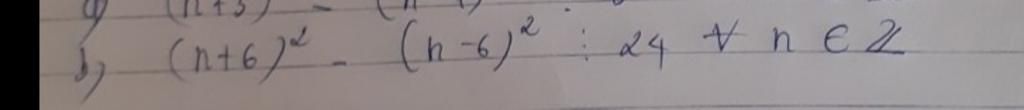 b) (n+6)² - (n-6)² ⋮ 24 ∀ n ∈ ℤ